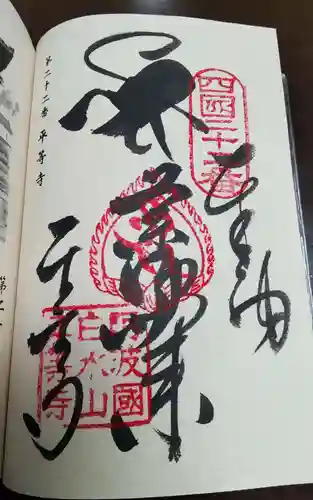 四国二十二番
奉納
薬師如来
平等寺
阿波國
白水山
平等寺
第二十二番 平等寺